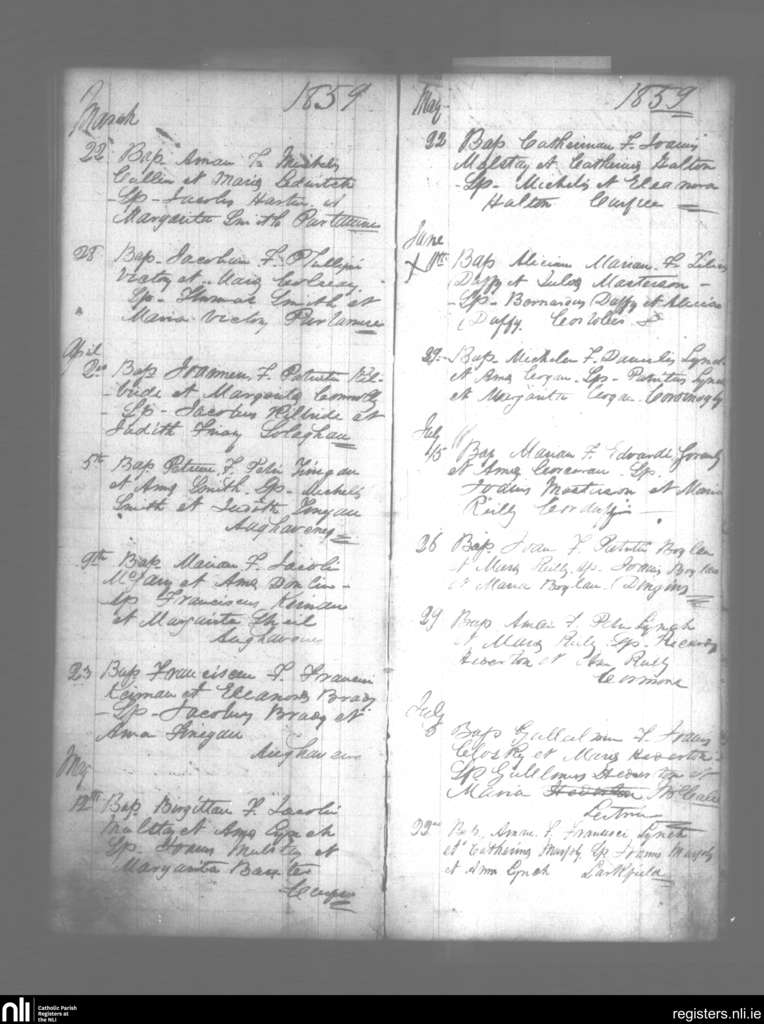 1859
March
22 Bap Anam F. Michls
Cullin et Maria
Sp Jacobus et
Margarita Smith
28 Bap. Jacobum F. Phillipi
Victory et Maria
Sp. Thomas Smith et
Maria Victory
April
2nd Bap Joannem F. Patritii Kil-
-bride et Margarita Connolly
- Sp - Jacobus Kilbride et
Judith
5th Bap. Petrum F. Petri Finegan
et Ama Smith. Sp. Michells
Smith et Judith Finegan
Aughavena
9th Bap Mariam F. Jacobi
et Ama Donlin
Sp Franciscus Kiernan
et Margarita
Aughavena
23 Bap Franciscum F. Francisci
Keirnan et Eleanora Brady
- Sp - Jacobus Brady et
Ama Finegan
Aughavena
May
12th Bap. Birgittam F. Jacobi
Mulstay et Ama Lynch
Sp Joanis Mulstay et
Margarita Baxter
1859
May
22 Bap Catherinam F. Joanis
Mulstay et Catherina Halton
- Sp - Michells et Eleanora
Halton
June
X 11th Bap Aliciam Mariam F.
Duffy et Julia Masterson -
- Sp - Bernardus Duffy et Alicia
Duffy.
29 - Bap. Michelem F. Danielis Lynch
et Ama Cogan - Sp - Patritius Lynch
et Margarita Cogan.
July
15 Bap Mariam F. Edwardi
et Ama Corcoran Sp.
Joanis Masterson et Maria
Reilly
26 Bap. Joan F. Patritii Boylan
et Maria Reilly Sp. Joanis Boylan
et Maria Boylan. Dingins
29 Bap Anam F. Petri Lynch
et Maria Reilly Sp.
Heverton et Reilly
Cormona
July
Bap Gulielmum F. Joanis
Closky et Maria Heverton
Sp Gulielmus Heverton et
Maria Heverton McCabe
Leitrim
22nd Bap. Anam F. Francisci Lynch
et Catherina Murphy Sp Joanis Murphy
et Ama Lynch Larkfield
nli
Catholic Parish
Registers at
the NLI
registers.nli.ie